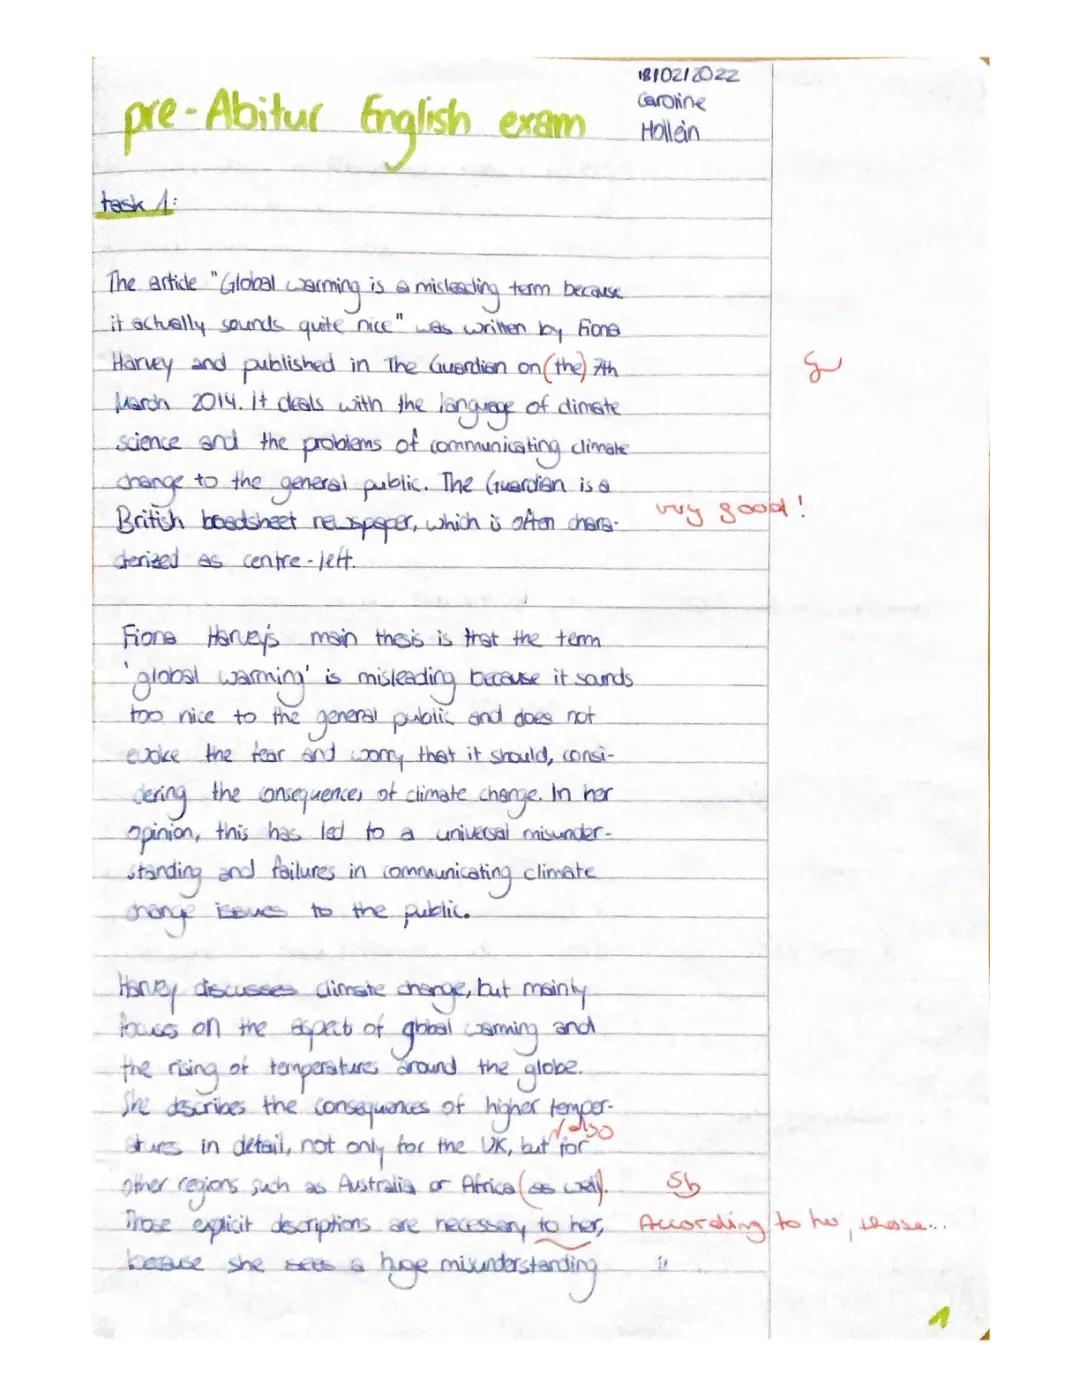 18/02/2022
pre-Abitur English exam
Caroline
Hollein
task 1:
The article "Global warming is a misleading term because
it actually sounds quite nice" was written by Fiona
Harvey and published in The Guardian on (the) 7th
March 2014. It deals with the language of climate
science and the problems of communicating climate
change to the general public. The Guardian is a
British boadsheet newspaper, which is often chara-
very good!
cterized as centre-left.
Fiona Harvey's main thesis is that the term
'global warming' is misleading because it sounds
too nice to the general public and does not
evoke the fear and worry that it should, consi-
dering the consequences of climate change. In her
opinion, this has led to a universal misunder-
standing and failures in communicating climate
change issues to the public.
Harvey discusses climate change, but mainly
focuses on the aspect of global warming and
the rising of temperatures around the globe.
She describes the consequences of higher temper-
also
atures in detail, not only for the UK, but for
other regions such as Australia or Africa (as well). Sb
Those explicit descriptions are necessary to her, According to her, those...
because she sees a huge misunderstanding
1